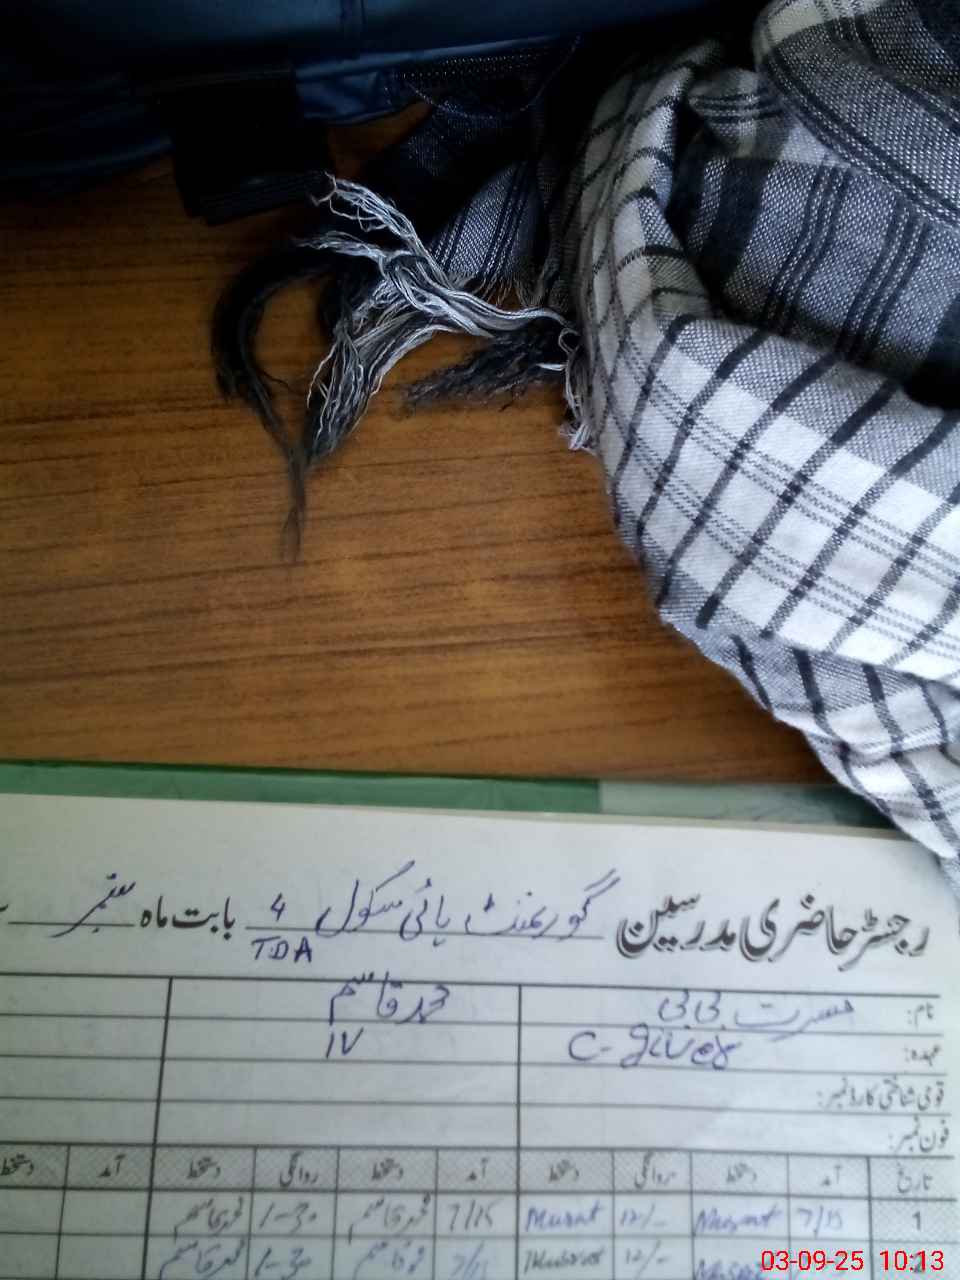 رجسٹر حاضری مدرسین گورنمنٹ ہائی سکول 4/TDA بابت ماہ ستمبر
نام: مسرت بی بی محمد قاسم
عہدہ: C-giver IV
قومی شناختی کارڈ نمبر:
فون نمبر:
تاریخ آمد دستخط روانگی دستخط آمد دستخط روانگی دستخط آمد دستخط
1 7/15 Musrat 12/- Musrat 7/15 محمد قاسم 1-30 محمد قاسم
2 Musrat 12/- Musrat محمد قاسم 1-30 محمد قاسم
03-09-25 10:13